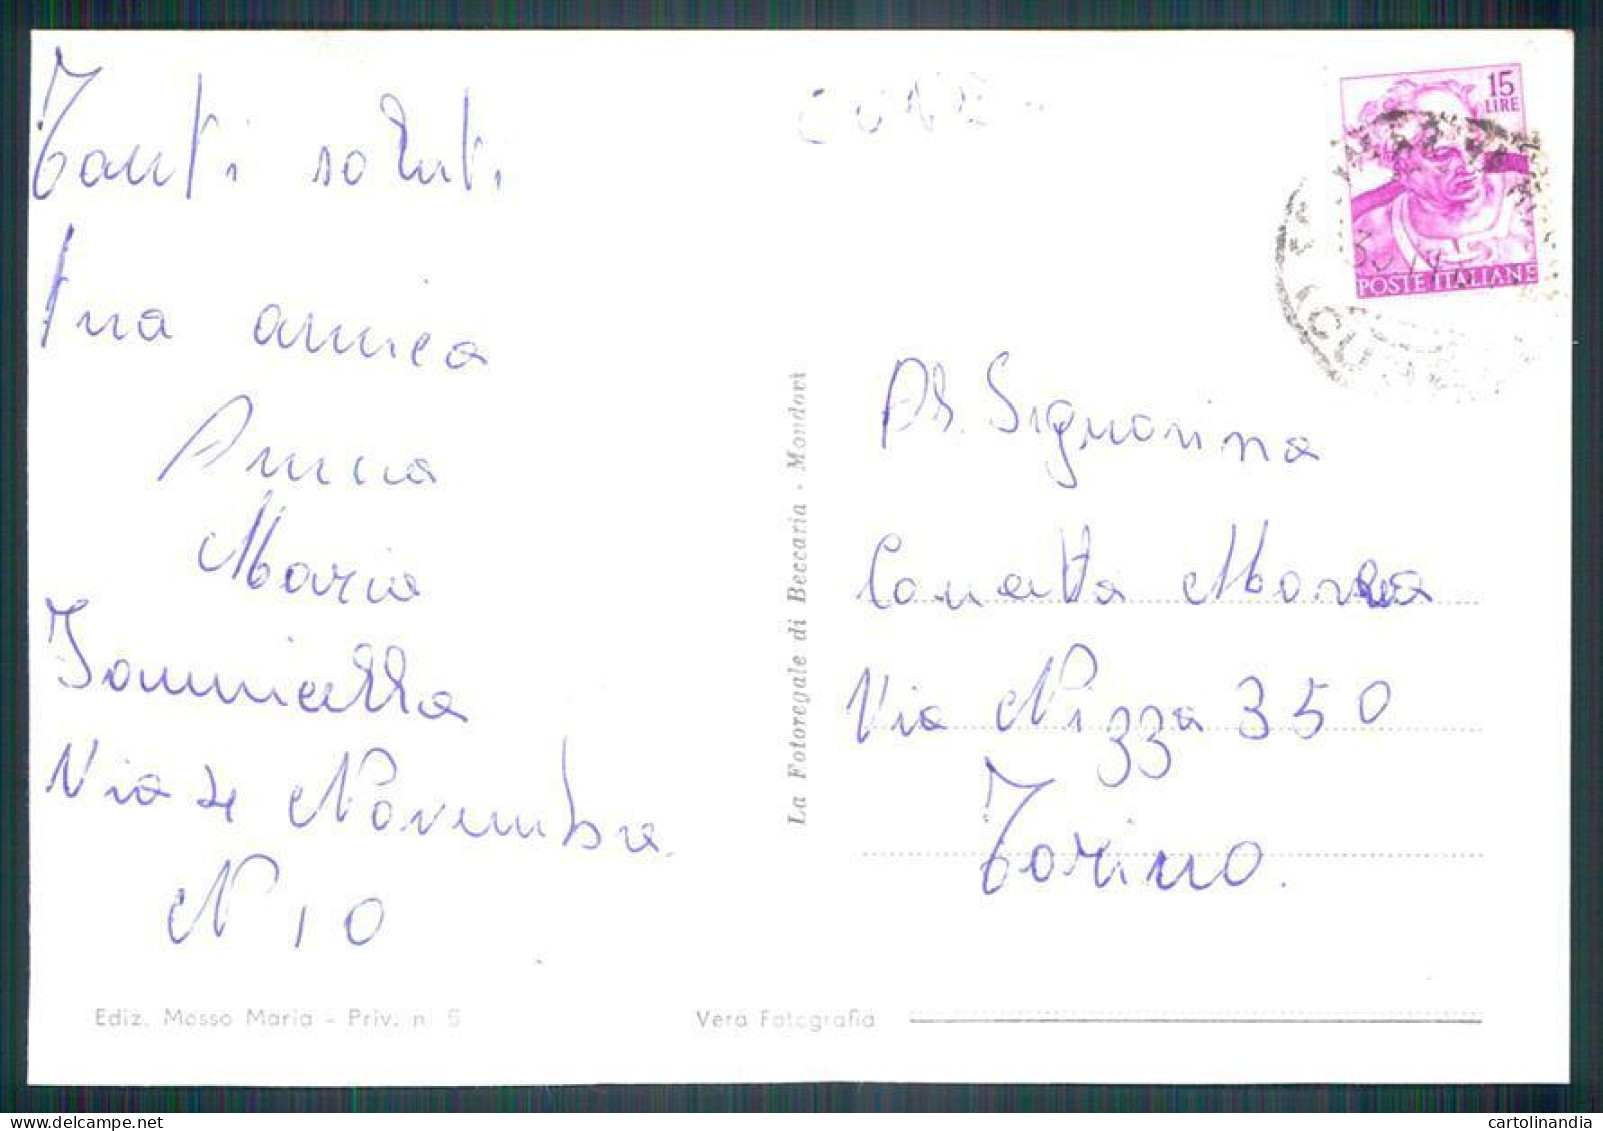 Tanti saluti
tua amica
Anna
Maria
Via 4 Novembre
N 10
Ediz. Mosso Maria - Priv. n. 5
CUNE
La Fotoregale di Beccaria - Mondovì
15
LIRE
POSTE ITALIANE
Signorina
Via Nizza 350
Torino.
Vera Fotografia
cartolinandia